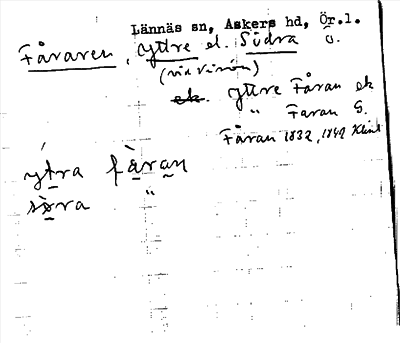 Lännäs sn, Askers hd, Ör.l.
Fåraren, yttre el. Södra ö.
ek. yttre Fåran ek
" Faran G.
Fåran 1832, 1842
ytra fåran
söra "